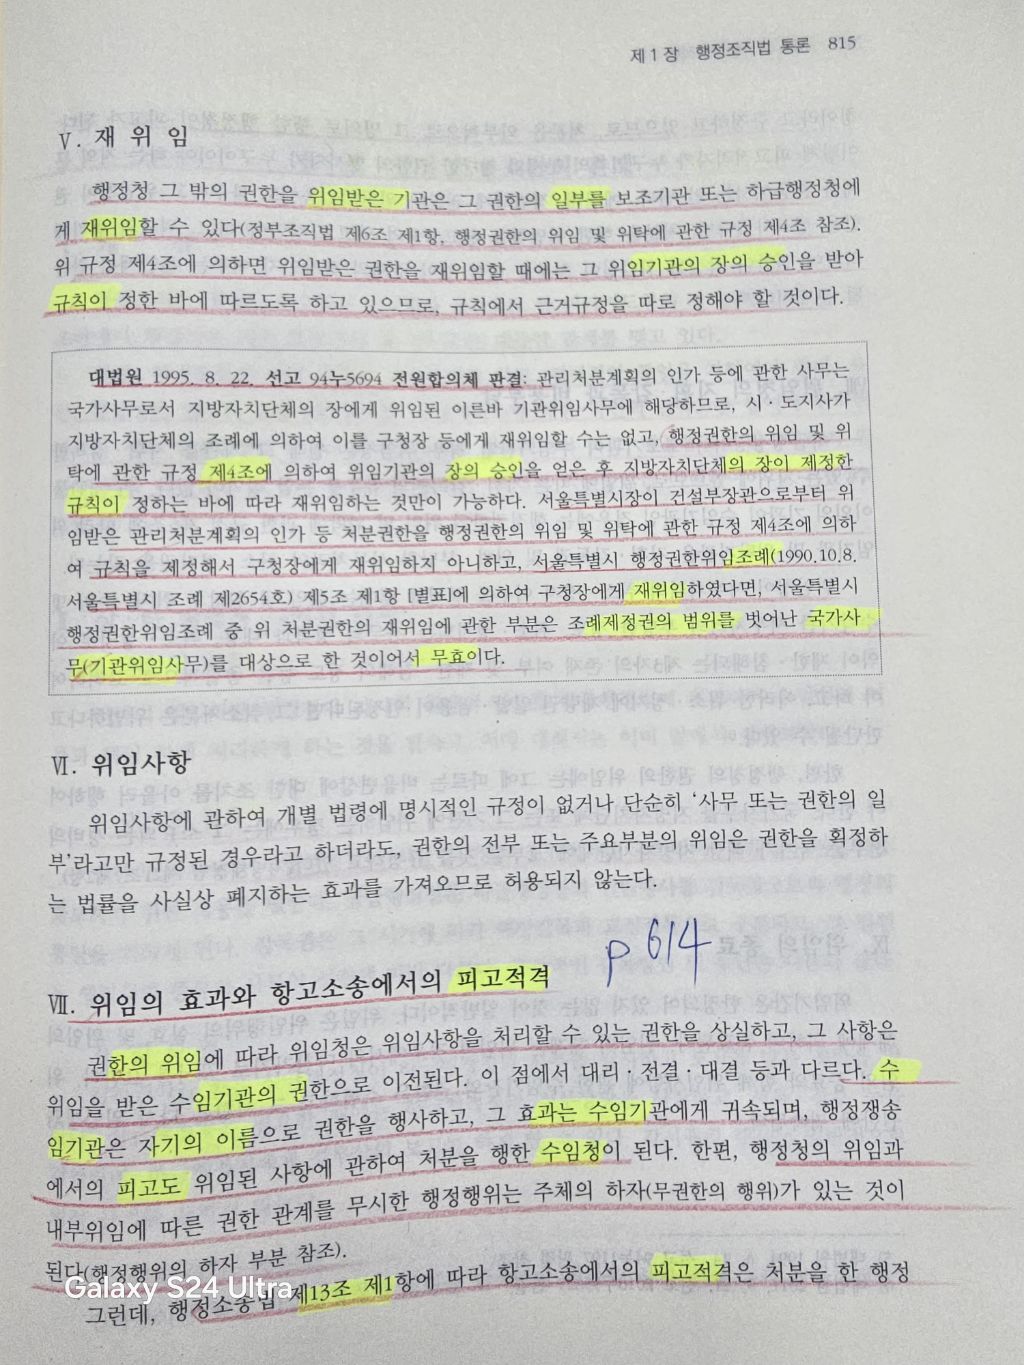 제 1 장 행정조직법 통론 815
Ⅴ. 재 위 임
행정청 그 밖의 권한을 위임받은 기관은 그 권한의 일부를 보조기관 또는 하급행정청에
게 재위임할 수 있다(정부조직법 제6조 제1항, 행정권한의 위임 및 위탁에 관한 규정 제4조 참조).
위 규정 제4조에 의하면 위임받은 권한을 재위임할 때에는 그 위임기관의 장의 승인을 받아
규칙이 정한 바에 따르도록 하고 있으므로, 규칙에서 근거규정을 따로 정해야 할 것이다.
대법원 1995. 8. 22. 선고 94누5694 전원합의체 판결: 관리처분계획의 인가 등에 관한 사무는
국가사무로서 지방자치단체의 장에게 위임된 이른바 기관위임사무에 해당하므로, 시·도지사가
지방자치단체의 조례에 의하여 이를 구청장 등에게 재위임할 수는 없고, 행정권한의 위임 및 위
탁에 관한 규정 제4조에 의하여 위임기관의 장의 승인을 얻은 후 지방자치단체의 장이 제정한
규칙이 정하는 바에 따라 재위임하는 것만이 가능하다. 서울특별시장이 건설부장관으로부터 위
임받은 관리처분계획의 인가 등 처분권한을 행정권한의 위임 및 위탁에 관한 규정 제4조에 의하
여 규칙을 제정해서 구청장에게 재위임하지 아니하고, 서울특별시 행정권한위임조례(1990.10.8.
서울특별시 조례 제2654호) 제5조 제1항 [별표]에 의하여 구청장에게 재위임하였다면, 서울특별시
행정권한위임조례 중 위 처분권한의 재위임에 관한 부분은 조례제정권의 범위를 벗어난 국가사
무(기관위임사무)를 대상으로 한 것이어서 무효이다.
Ⅵ. 위임사항
위임사항에 관하여 개별 법령에 명시적인 규정이 없거나 단순히 '사무 또는 권한의 일
부'라고만 규정된 경우라고 하더라도, 권한의 전부 또는 주요부분의 위임은 권한을 획정하
는 법률을 사실상 폐지하는 효과를 가져오므로 허용되지 않는다.
p 614
Ⅶ. 위임의 효과와 항고소송에서의 피고적격
권한의 위임에 따라 위임청은 위임사항을 처리할 수 있는 권한을 상실하고, 그 사항은
위임을 받은 수임기관의 권한으로 이전된다. 이 점에서 대리·전결·대결 등과 다르다. 수
임기관은 자기의 이름으로 권한을 행사하고, 그 효과는 수임기관에게 귀속되며, 행정쟁송
에서의 피고도 위임된 사항에 관하여 처분을 행한 수임청이 된다. 한편, 행정청의 위임과
내부위임에 따른 권한 관계를 무시한 행정행위는 주체의 하자(무권한의 행위)가 있는 것이
된다(행정행위의 하자 부분 참조).
그런데, 행정소송법 제13조 제1항에 따라 항고소송에서의 피고적격은 처분을 한 행정
Galaxy S24 Ultra